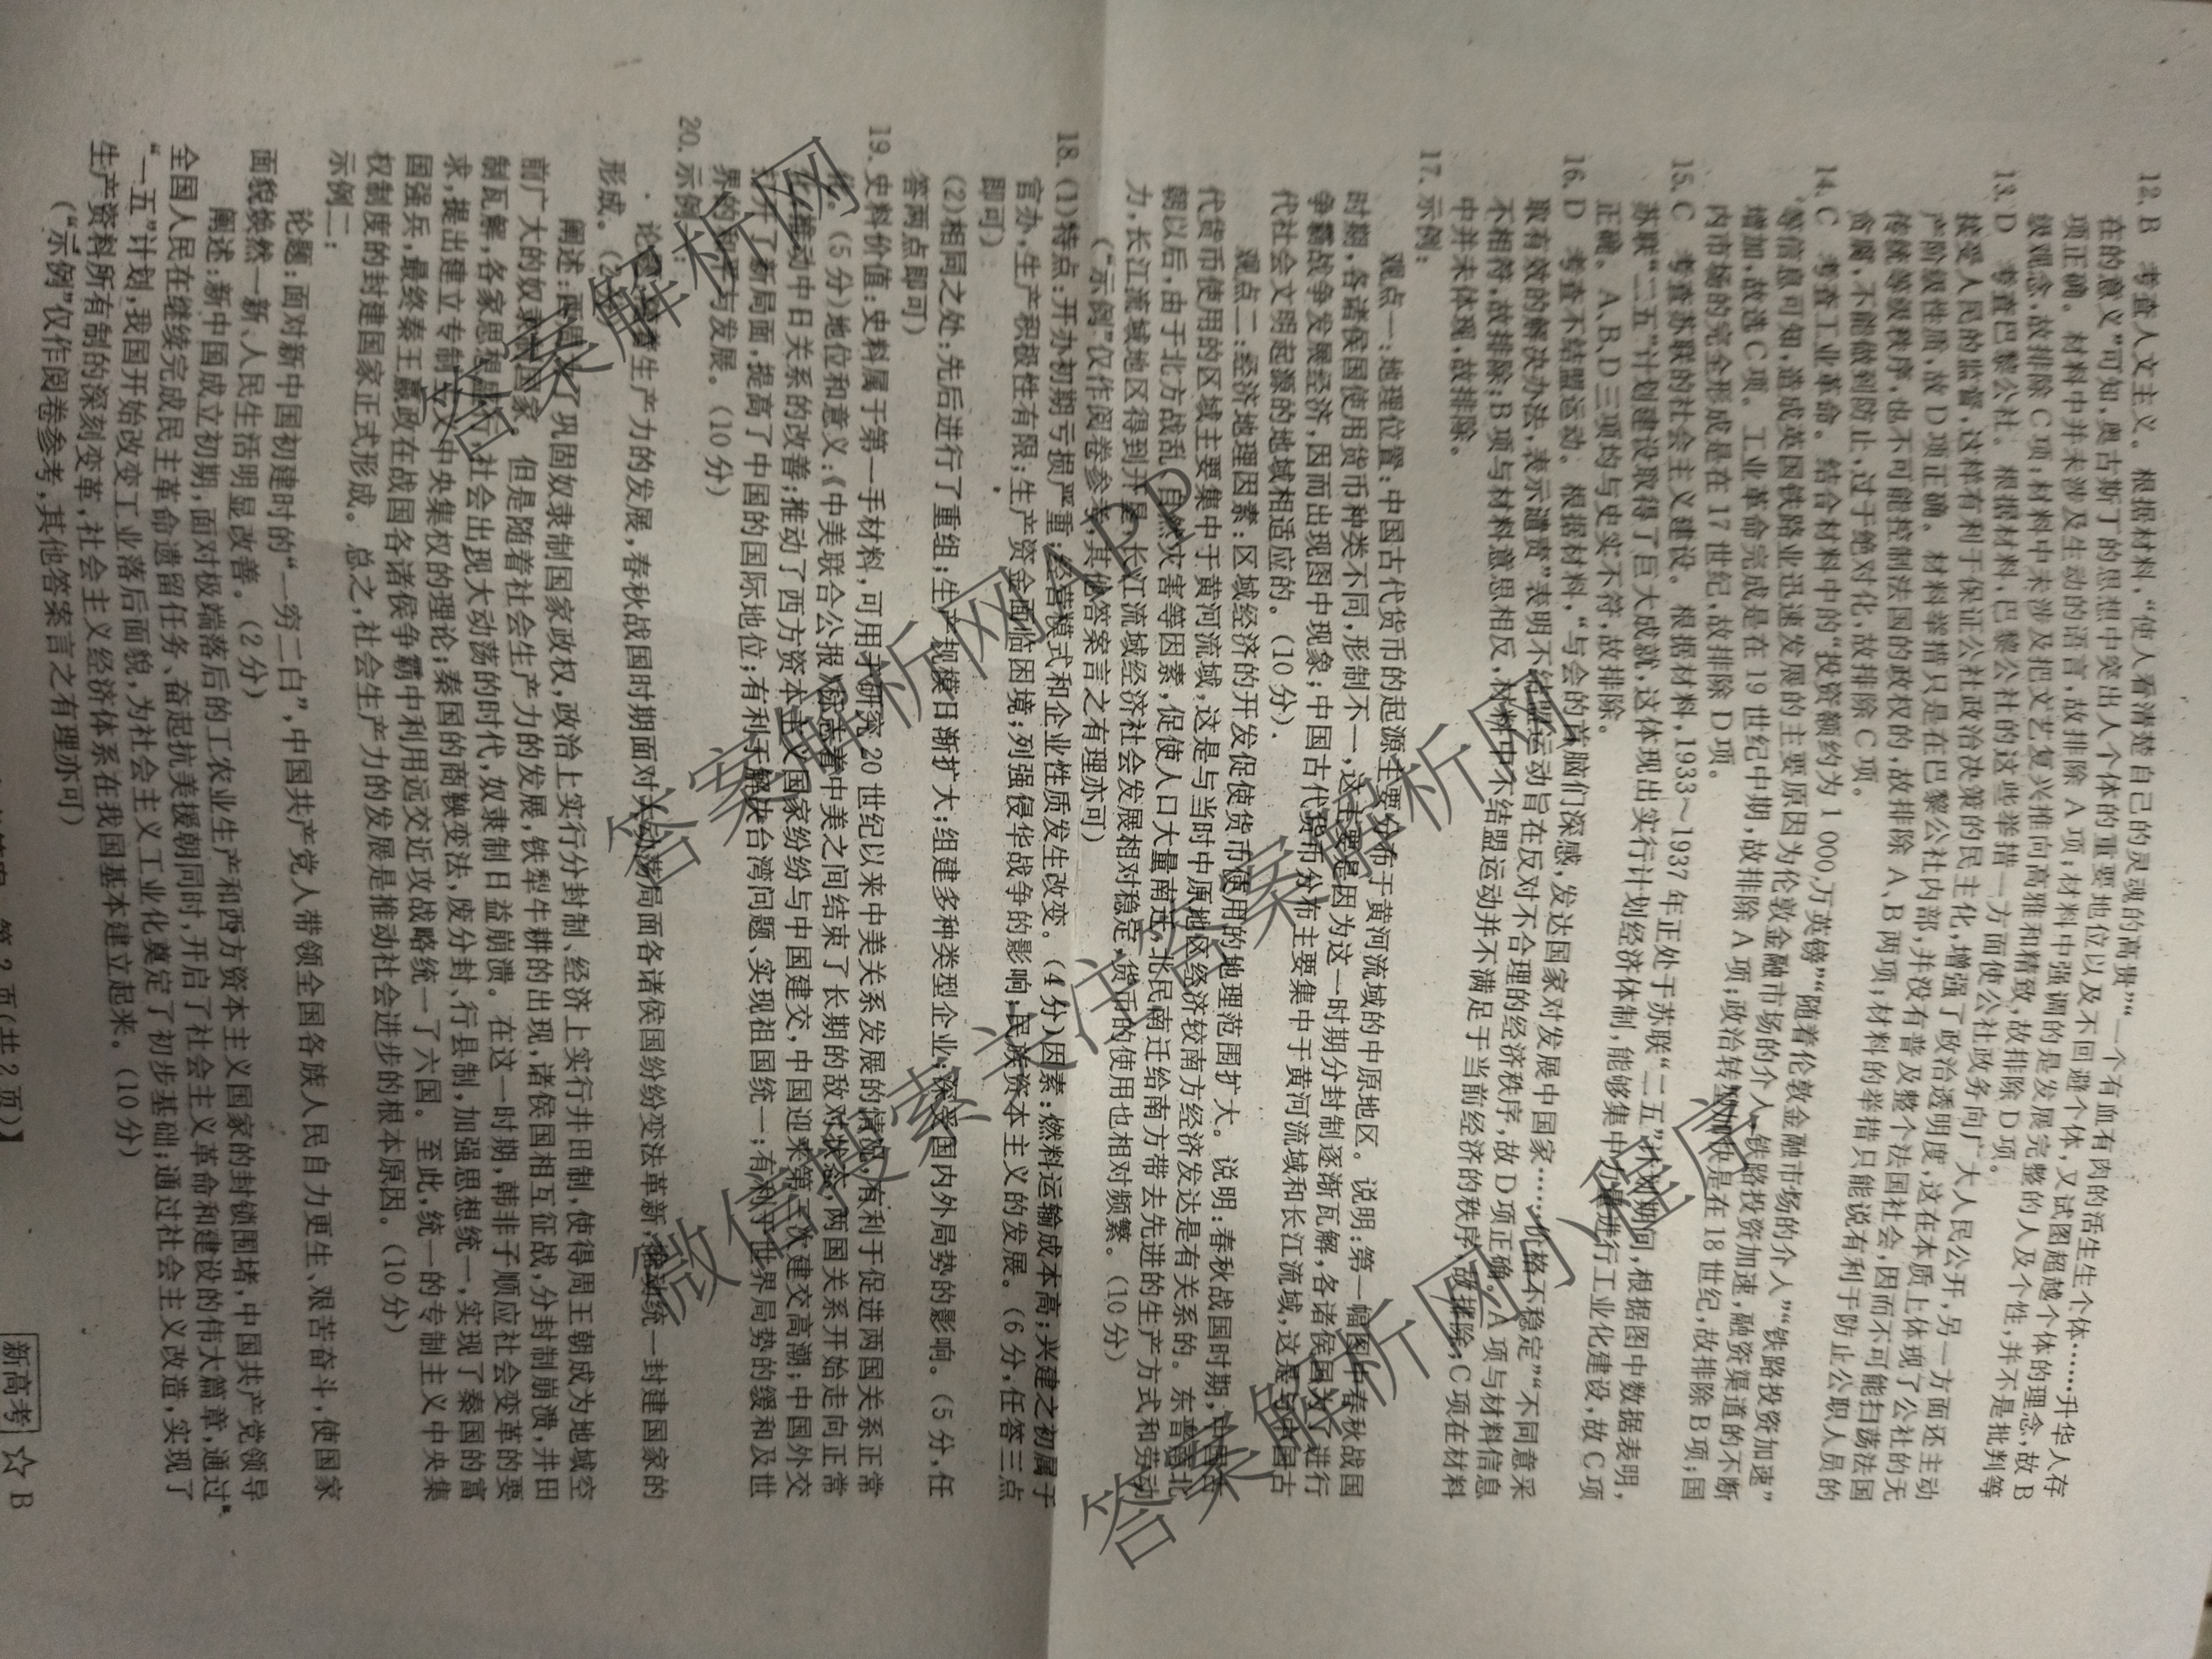 12. B　考查人文主义。根据材料，“使人看清楚自己的灵魂的高贵”“一个有血有肉的活生生个体……升华人存
在的意义”可知，奥古斯丁的思想中突出人个体的重要地位以及不回避个体，又试图超越个体的理念，故 B
项正确。材料中并未涉及生动的语言，故排除 A 项；材料中强调的是发展完整的人及个性，并不是批判等
级观念，故排除 C 项；材料中未涉及把文艺复兴推向高雅和精致，故排除 D 项。
13. D　考查巴黎公社。根据材料，巴黎公社的这些举措一方面使公社政务向广大人民公开，另一方面还主动
接受人民的监督，这样有利于保证公社政治决策的民主化，增强了政治透明度，这在本质上体现了公社的无
产阶级性质，故 D 项正确。材料举措只是在巴黎公社内部，并没有普及整个法国社会，因而不可能扫荡法国
传统等级秩序，也不可能控制法国的政权的，故排除 A、B 两项；材料的举措只能说有利于防止公职人员的
贪腐，不能做到防止，过于绝对化，故排除 C 项。
14. C　考查工业革命。结合材料中的“投资额约为 1 000 万英镑”“随着伦敦金融市场的介入”“铁路投资加速”
等信息可知，造成英国铁路业迅速发展的主要原因为伦敦金融市场的介入，铁路投资加速，融资渠道的不断
增加，故选 C 项。工业革命完成是在 19 世纪中期，故排除 A 项；政治转型加快是在 18 世纪，故排除 B 项；国
内市场的完全形成是在 17 世纪，故排除 D 项。
15. C　考查苏联的社会主义建设。根据材料，1933～1937 年正处于苏联“二五”计划期间，根据图中数据表明，
苏联“二五”计划建设取得了巨大成就，这体现出实行计划经济体制，能够集中力量进行工业化建设，故 C 项
正确。A、B、D 三项均与史实不符，故排除。
16. D　考查不结盟运动。根据材料，“与会的首脑们深感，发达国家对发展中国家……价格不稳定”“不同意采
取有效的解决办法，表示遗责”表明不结盟运动旨在反对不合理的经济秩序，故 D 项正确。A 项与材料信息
不相符，故排除；B 项与材料意思相反，材料中不结盟运动并不满足于当前经济的秩序，故排除；C 项在材料
中并未体现，故排除。
17. 示例：
观点一：地理位置：中国古代货币的起源主要分布于黄河流域的中原地区。说明：第一幅图中春秋战国
时期，各诸侯国使用货币种类不同，形制不一，这主要是因为这一时期分封制逐渐瓦解，各诸侯国为了进行
争霸战争发展经济，因而出现图中现象；中国古代货币分布主要集中于黄河流域和长江流域，这是与中国古
代社会文明起源的地域相适应的。（10 分）
观点二：经济地理因素：区域经济的开发促使货币使用的地理范围扩大。说明：春秋战国时期，中国古
代货币使用的区域主要集中于黄河流域，这是与当时中原地区经济较南方经济发达是有关系的。东晋南北
朝以后，由于北方战乱、自然灾害等因素，促使人口大量南迁，北民南迁给南方带去先进的生产方式和劳动
力，长江流域地区得到开发，长江流域经济社会发展相对稳定，货币的使用也相对频繁。（10 分）
（“示例”仅作阅卷参考，其他答案言之有理亦可）
18. (1)特点：开办初期亏损严重；经营模式和企业性质发生改变。（4 分）因素：燃料运输成本高；兴建之初属于
官办，生产积极性有限；生产资金面临困境；列强侵华战争的影响；民族资本主义的发展。（6 分，任答三点
即可）
(2)相同之处：先后进行了重组；生产规模日渐扩大；组建多种类型企业；深受国内外局势的影响。（5 分，任
答两点即可）
19. 史料价值：史料属于第一手材料，可用于研究 20 世纪以来中美关系发展的情况，有利于促进两国关系正常
化。（5 分）地位和意义：《中美联合公报》标志着中美之间结束了长期的敌对状态，两国关系开始走向正常
化；推动中日关系的改善；推动了西方资本主义国家纷纷与中国建交，中国迎来第三次建交高潮；中国外交
打开了新局面，提高了中国的国际地位；有利于解决台湾问题、实现祖国统一；有利于世界局势的缓和及世
界的和平与发展。（10 分）
20. 示例一：
论题：随着生产力的发展，春秋战国时期面对大动荡局面各诸侯国纷纷变法革新，推动统一封建国家的
形成。（2 分）
阐述：西周为了巩固奴隶制国家政权，政治上实行分封制、经济上实行井田制，使得周王朝成为地域空
前广大的奴隶制国家。但是随着社会生产力的发展，铁犁牛耕的出现，诸侯国相互征战，分封制崩溃，井田
制瓦解，各家思想盛行，社会出现大动荡的时代，奴隶制日益崩溃。在这一时期，韩非子顺应社会变革的要
求，提出建立专制主义中央集权的理论；秦国的商鞅变法，废分封、行县制，加强思想统一，实现了秦国的富
国强兵，最终秦王嬴政在战国各诸侯争霸中利用远交近攻战略统一了六国。至此，统一的专制主义中央集
权制度的封建国家正式形成。总之，社会生产力的发展是推动社会进步的根本原因。（10 分）
示例二：
论题：面对新中国初建时的“一穷二白”，中国共产党人带领全国各族人民自力更生、艰苦奋斗，使国家
面貌焕然一新、人民生活明显改善。（2 分）
阐述：新中国成立初期，面对极端落后的工农业生产和西方资本主义国家的封锁围堵，中国共产党领导
全国人民在继续完成民主革命遗留任务、奋起抗美援朝同时，开启了社会主义革命和建设的伟大篇章，通过
“一五”计划，我国开始改变工业落后面貌，为社会主义工业化奠定了初步基础；通过社会主义改造，实现了
生产资料所有制的深刻变革，社会主义经济体系在我国基本建立起来。（10 分）
（“示例”仅作阅卷参考，其他答案言之有理亦可）
第 2 页(共 2 页)】
新高考 ☆ B